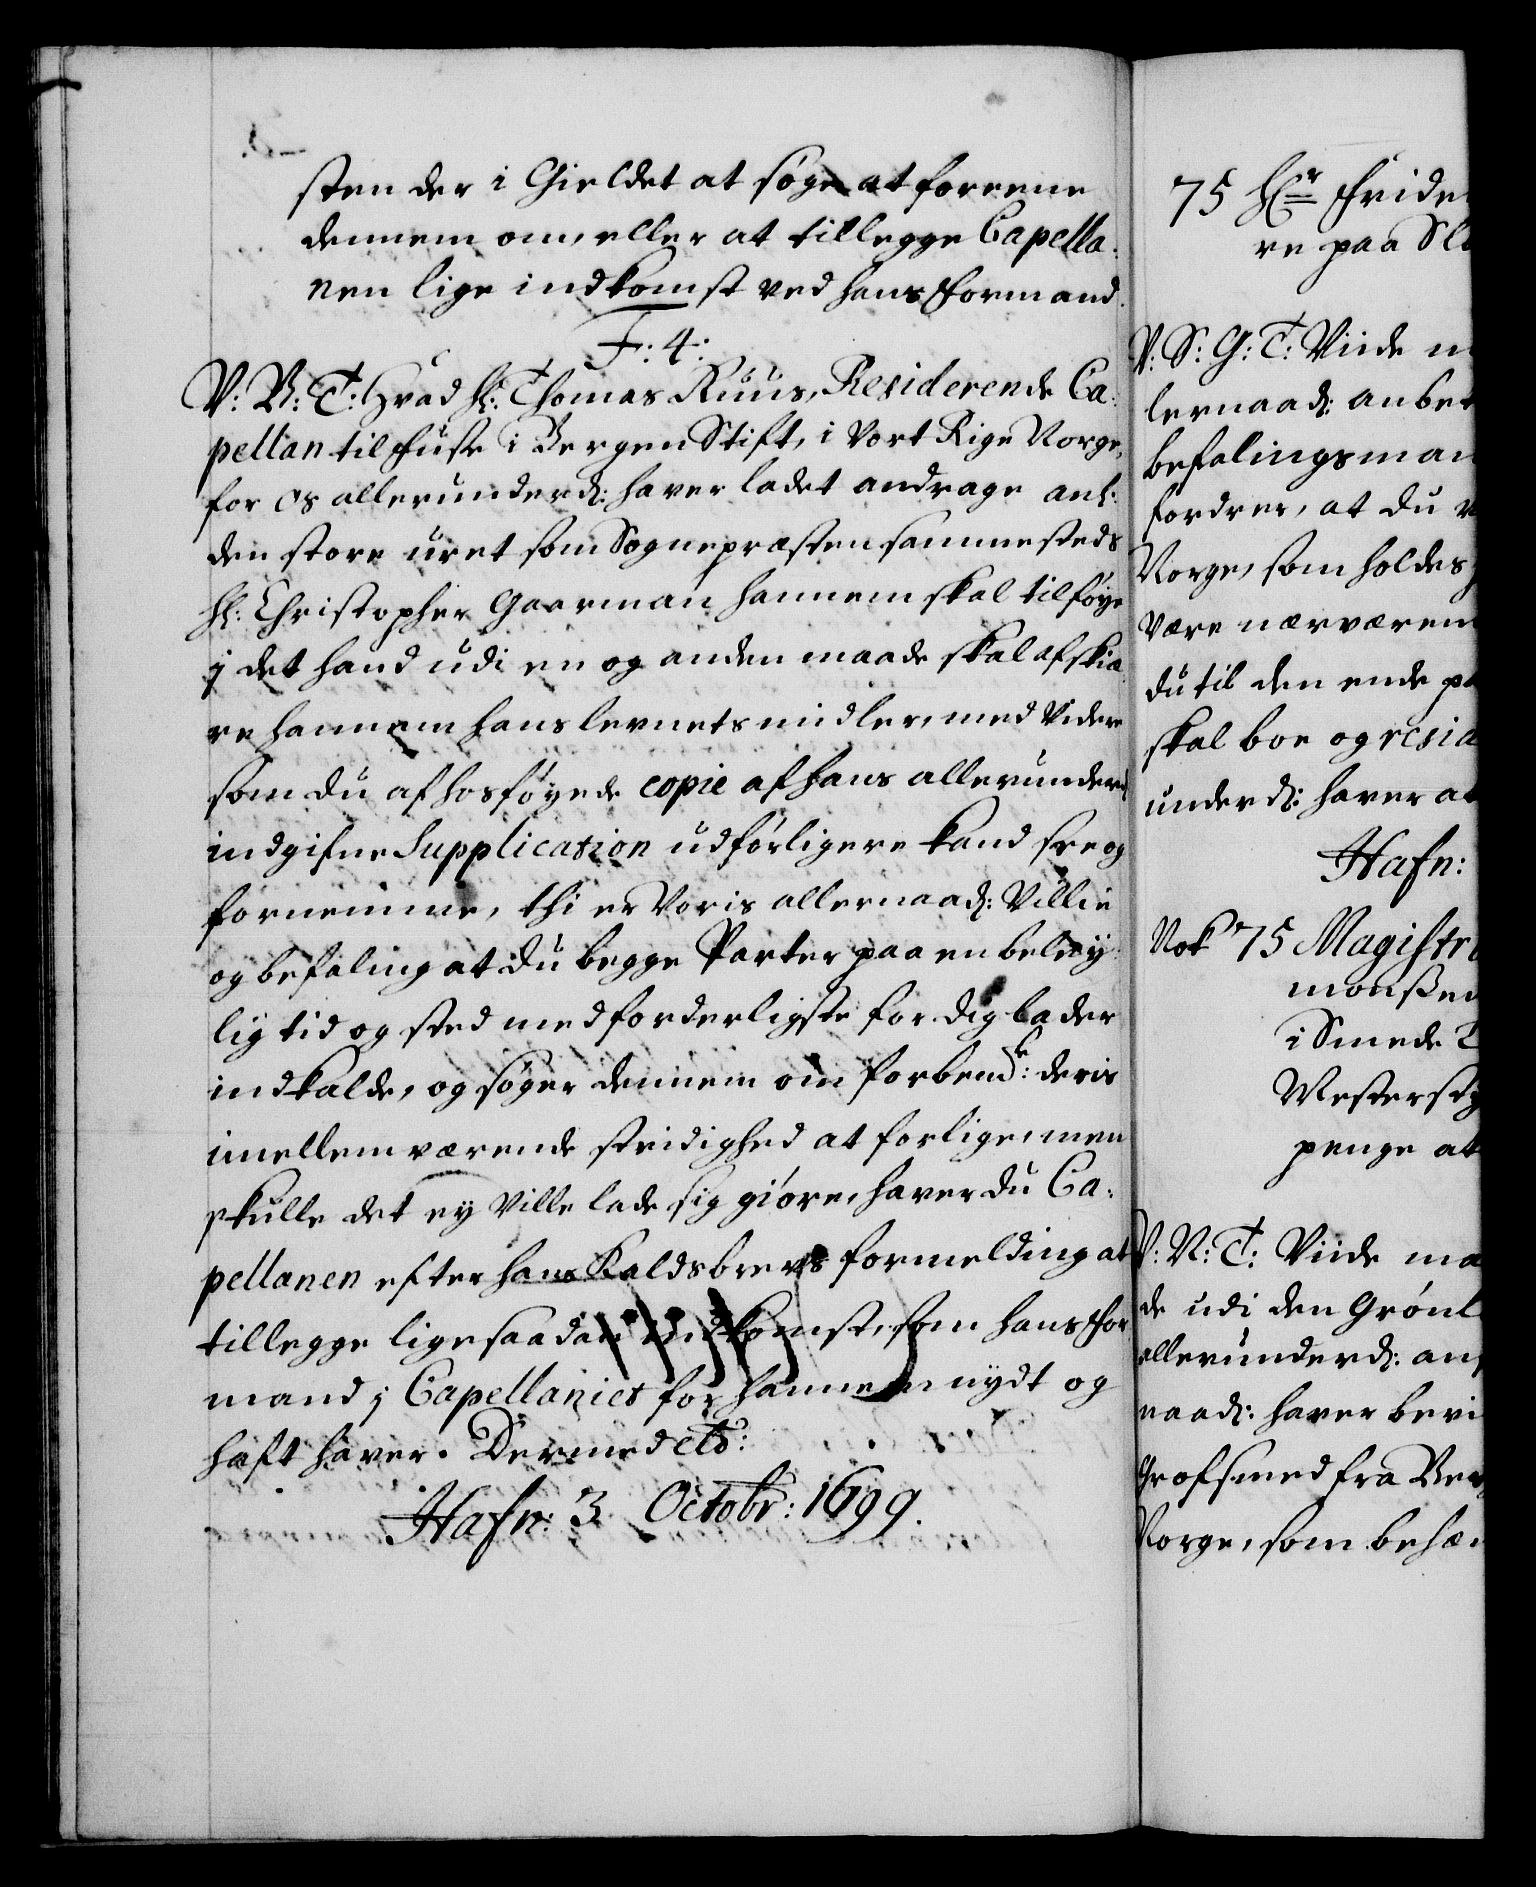 sten der i Gieldet at søge at foreene
dennem om, eller at tillegge Capella-
nen lige indkomst ved hans Formand.
F: 4:
V: B: T: Hvad Hr: Thomas Ruus, Residerende Ca-
pellan til Fuse i Bergen Stift, i Vort Rige Norge,
for os allerunderd: haver ladet andrage anl:
den store uret som Sognepræsten sammesteds
Hr: Christopher Gaarman hannem skal tilføye
j det hand udi en og anden maade skal afskiæ-
re hannem hans levnets midler, med Videre
som du af hosføyede copie af hans allerunderd:
indgifne Supplication udførligere kand see og
fornemme, thi er Voris allernaad: Villie
og befaling at du begge Parter paa en beley-
lig tid og sted med forderligste for dig lader
indkalde, og søger dennem om forbemde: deris
imellem værende stridighed at forlige, men
skulle det ey Ville lade sig giøre, haver du Ca-
pellanen efter hans Kaldsbrevs formelding at
tillegge lige saadan indkomst, som hans For
mand j Capellaniet for hannem nydt og
haft haver. Dermed etc:
Hafn: 3 Octobr: 1699.
75 Hr Fride
re paa Sl
V: S: G: T: Viide m
lernaad: anbet
befalingsman
fordrer, at du
Norge, som holdes
være nærværen
du til den ende p
skal boe og resid
underd: haver at
Hafn:
Nok 75 Magistr
monßen
i Smede
Westerst
penge at
V: N: T: Viide ma
de udi den Grønl
allerunderd: an
naad: haver bevi
Grofsmed fra Ber
Norge, som behæ